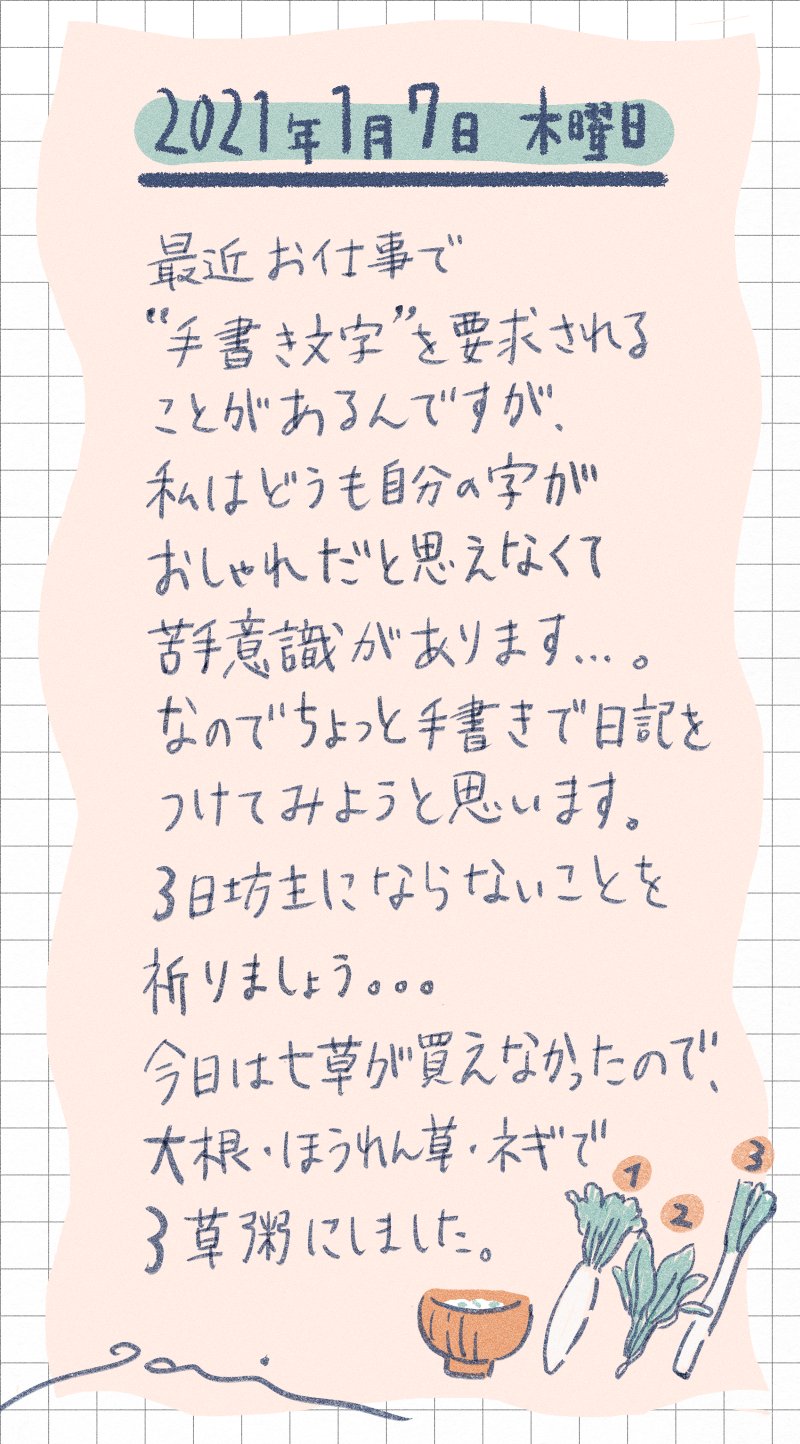 2021年1月7日 木曜日
最近お仕事で
“手書き文字”を要求される
ことがあるんですが、
私はどうも自分の字が
おしゃれだと思えなくて
苦手意識があります…。
なのでちょっと手書きで日記を
つけてみようと思います。
3日坊主にならないことを
祈りましょう。。。
今日は七草が買えなかったので、
大根・ほうれん草・ネギで
3草粥にしました。
1
2
3